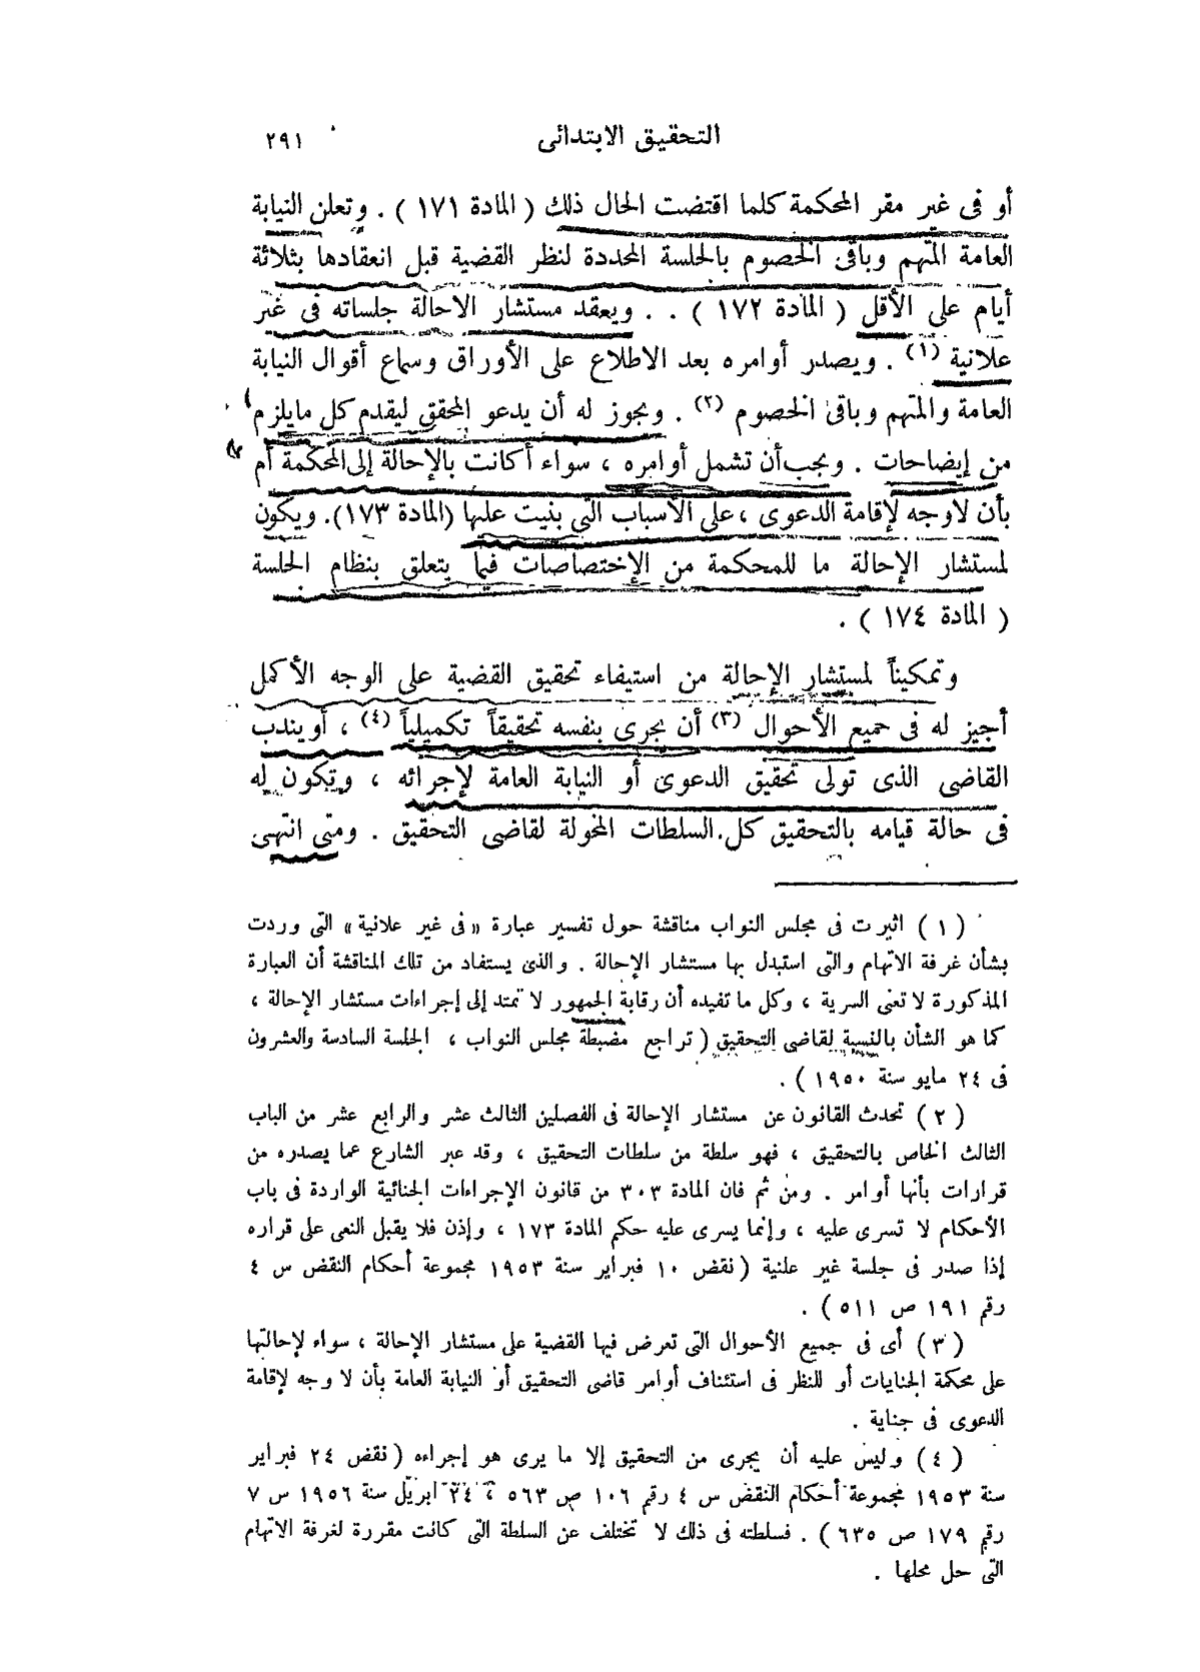 التحقيق الابتدائى ٢٩١
أو فى غير مقر المحكمة كلما اقتضت الحال ذلك ( المادة ١٧١ ) . وتعلن النيابة
العامة المتهم وباقى الخصوم بالجلسة المحددة لنظر القضية قبل انعقادها بثلاثة
أيام على الأقل ( المادة ١٧٢ ) . . ويعقد مستشار الاحالة جلساته فى غير
علانية (١) . ويصدر أوامره بعد الاطلاع على الأوراق وسماع أقوال النيابة
العامة والمتهم وباقى الخصوم (٢) . ويجوز له أن يدعو المحقق ليقدم كل مايلزم
من إيضاحات . ويجب أن تشمل أوامره ، سواء أكانت بالإحالة إلى المحكمة أم
بأن لاوجه لإقامة الدعوى ، على الأسباب التى بنيت عليها (المادة ١٧٣). ويكون
لمستشار الإحالة ما للمحكمة من الإختصاصات فيما يتعلق بنظام الجلسة
( المادة ١٧٤ ) .
وتمكيناً لمستشار الإحالة من استيفاء تحقيق القضية على الوجه الأكمل
أجيز له فى جميع الأحوال (٣) أن يجرى بنفسه تحقيقاً تكميلياً (٤) ، أو يندب
القاضى الذى تولى تحقيق الدعوى أو النيابة العامة لإجرائه ، وتكون له
فى حالة قيامه بالتحقيق كل السلطات المخولة لقاضى التحقيق . ومتى انتهى
( ١ ) اثيرت فى مجلس النواب مناقشة حول تفسير عبارة « فى غير علانية » التى وردت
بشأن غرفة الاتهام والتى استبدل بها مستشار الإحالة . والذى يستفاد من تلك المناقشة أن العبارة
المذكورة لا تعنى السرية ، وكل ما تفيده أن رقابة الجمهور لا تمتد إلى إجراءات مستشار الإحالة ،
كما هو الشأن بالنسبة لقاضى التحقيق ( تراجع مضبطة مجلس النواب ، الجلسة السادسة والعشرون
فى ٢٤ مايو سنة ١٩٥٠ ) .
( ٢ ) تحدث القانون عن مستشار الإحالة فى الفصلين الثالث عشر والرابع عشر من الباب
الثالث الخاص بالتحقيق ، فهو سلطة من سلطات التحقيق ، وقد عبر الشارع عما يصدره من
قرارات بأنها أوامر . ومن ثم فان المادة ٣٠٣ من قانون الإجراءات الجنائية الواردة فى باب
الأحكام لا تسرى عليه ، وإنما يسرى عليه حكم المادة ١٧٣ ، وإذن فلا يقبل النعى على قراره
إذا صدر فى جلسة غير علنية ( نقض ١٠ فبراير سنة ١٩٥٣ مجموعة أحكام النقض س ٤
رقم ١٩١ ص ٥١١ ) .
( ٣ ) أى فى جميع الأحوال التى تعرض فيها القضية على مستشار الإحالة ، سواء لإحالتها
على محكمة الجنايات أو للنظر فى استئناف أوامر قاضى التحقيق أو النيابة العامة بأن لا وجه لإقامة
الدعوى فى جناية .
( ٤ ) وليس عليه أن يجرى من التحقيق إلا ما يرى هو إجراءه ( نقض ٢٤ فبراير
سنة ١٩٥٣ مجموعة أحكام النقض س ٤ رقم ١٠٦ ص ٥٦٣ ، ٢٤ ابريل سنة ١٩٥٦ س ٧
رقم ١٧٩ ص ٦٣٥ ) . فسلطته فى ذلك لا تختلف عن السلطة التى كانت مقررة لغرفة الاتهام
التى حل محلها .